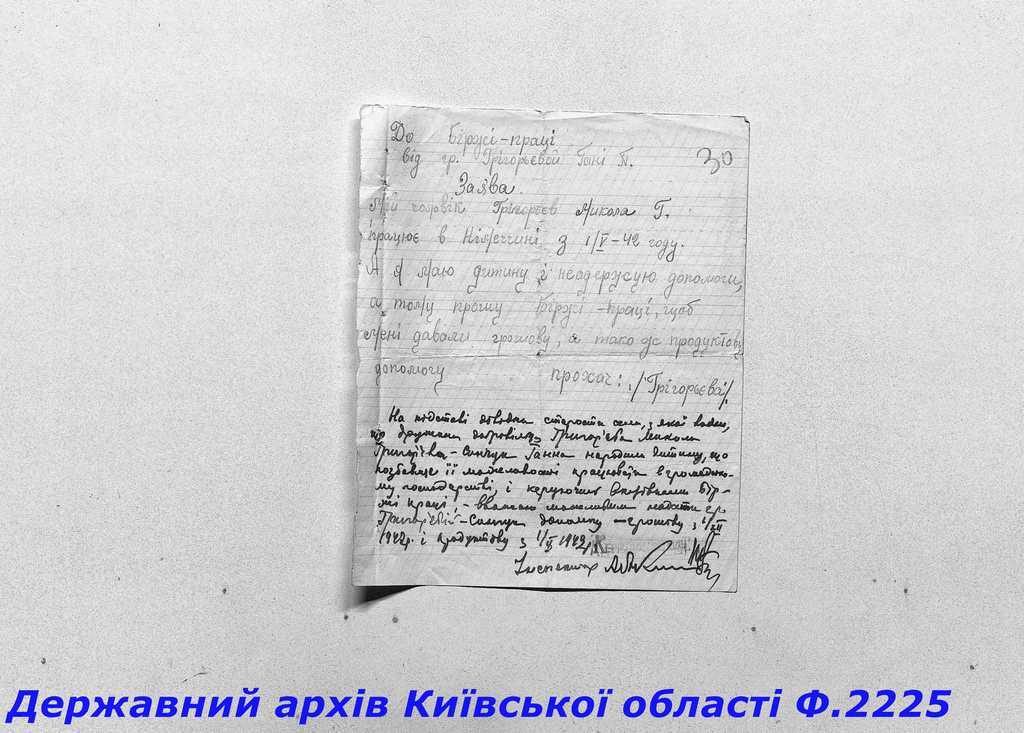 До Біржі-праці
від гр. Грігорьєвой Гані П.
30
Заява.
Мій чоловік Грігорьєв Микола Г.
працює в Німеччині з 1/V-42 году.
А я маю дитину, і неодержую допомоги,
а тому прошу Біржі-праці, щоб
мені давали грошову, а також продуктову
допомогу прохач: /Грігорьєва/.
На підставі довідки старости села, з якої видно,
що дружина Григор'єва Микола
Григор'єва-Синчук Ганна народила дитину, що
позбавляє її можливості працювати в громадсько-
му господарстві, і керуючись Бір-
жі праці, - вважаю можливим надати гр.
Григор'євій-Синчук допомогу - грошову з 1/VII
1942р. і продуктову з 1/V 1942
Інспектор
Державний архів Київської області Ф.2225